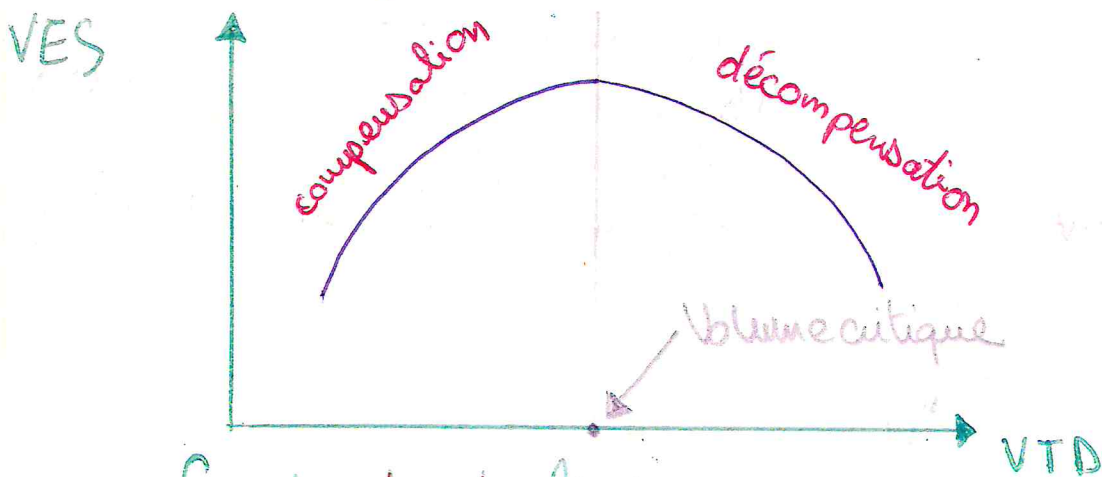 VES
compensation
décompensation
Volume critique
VTD